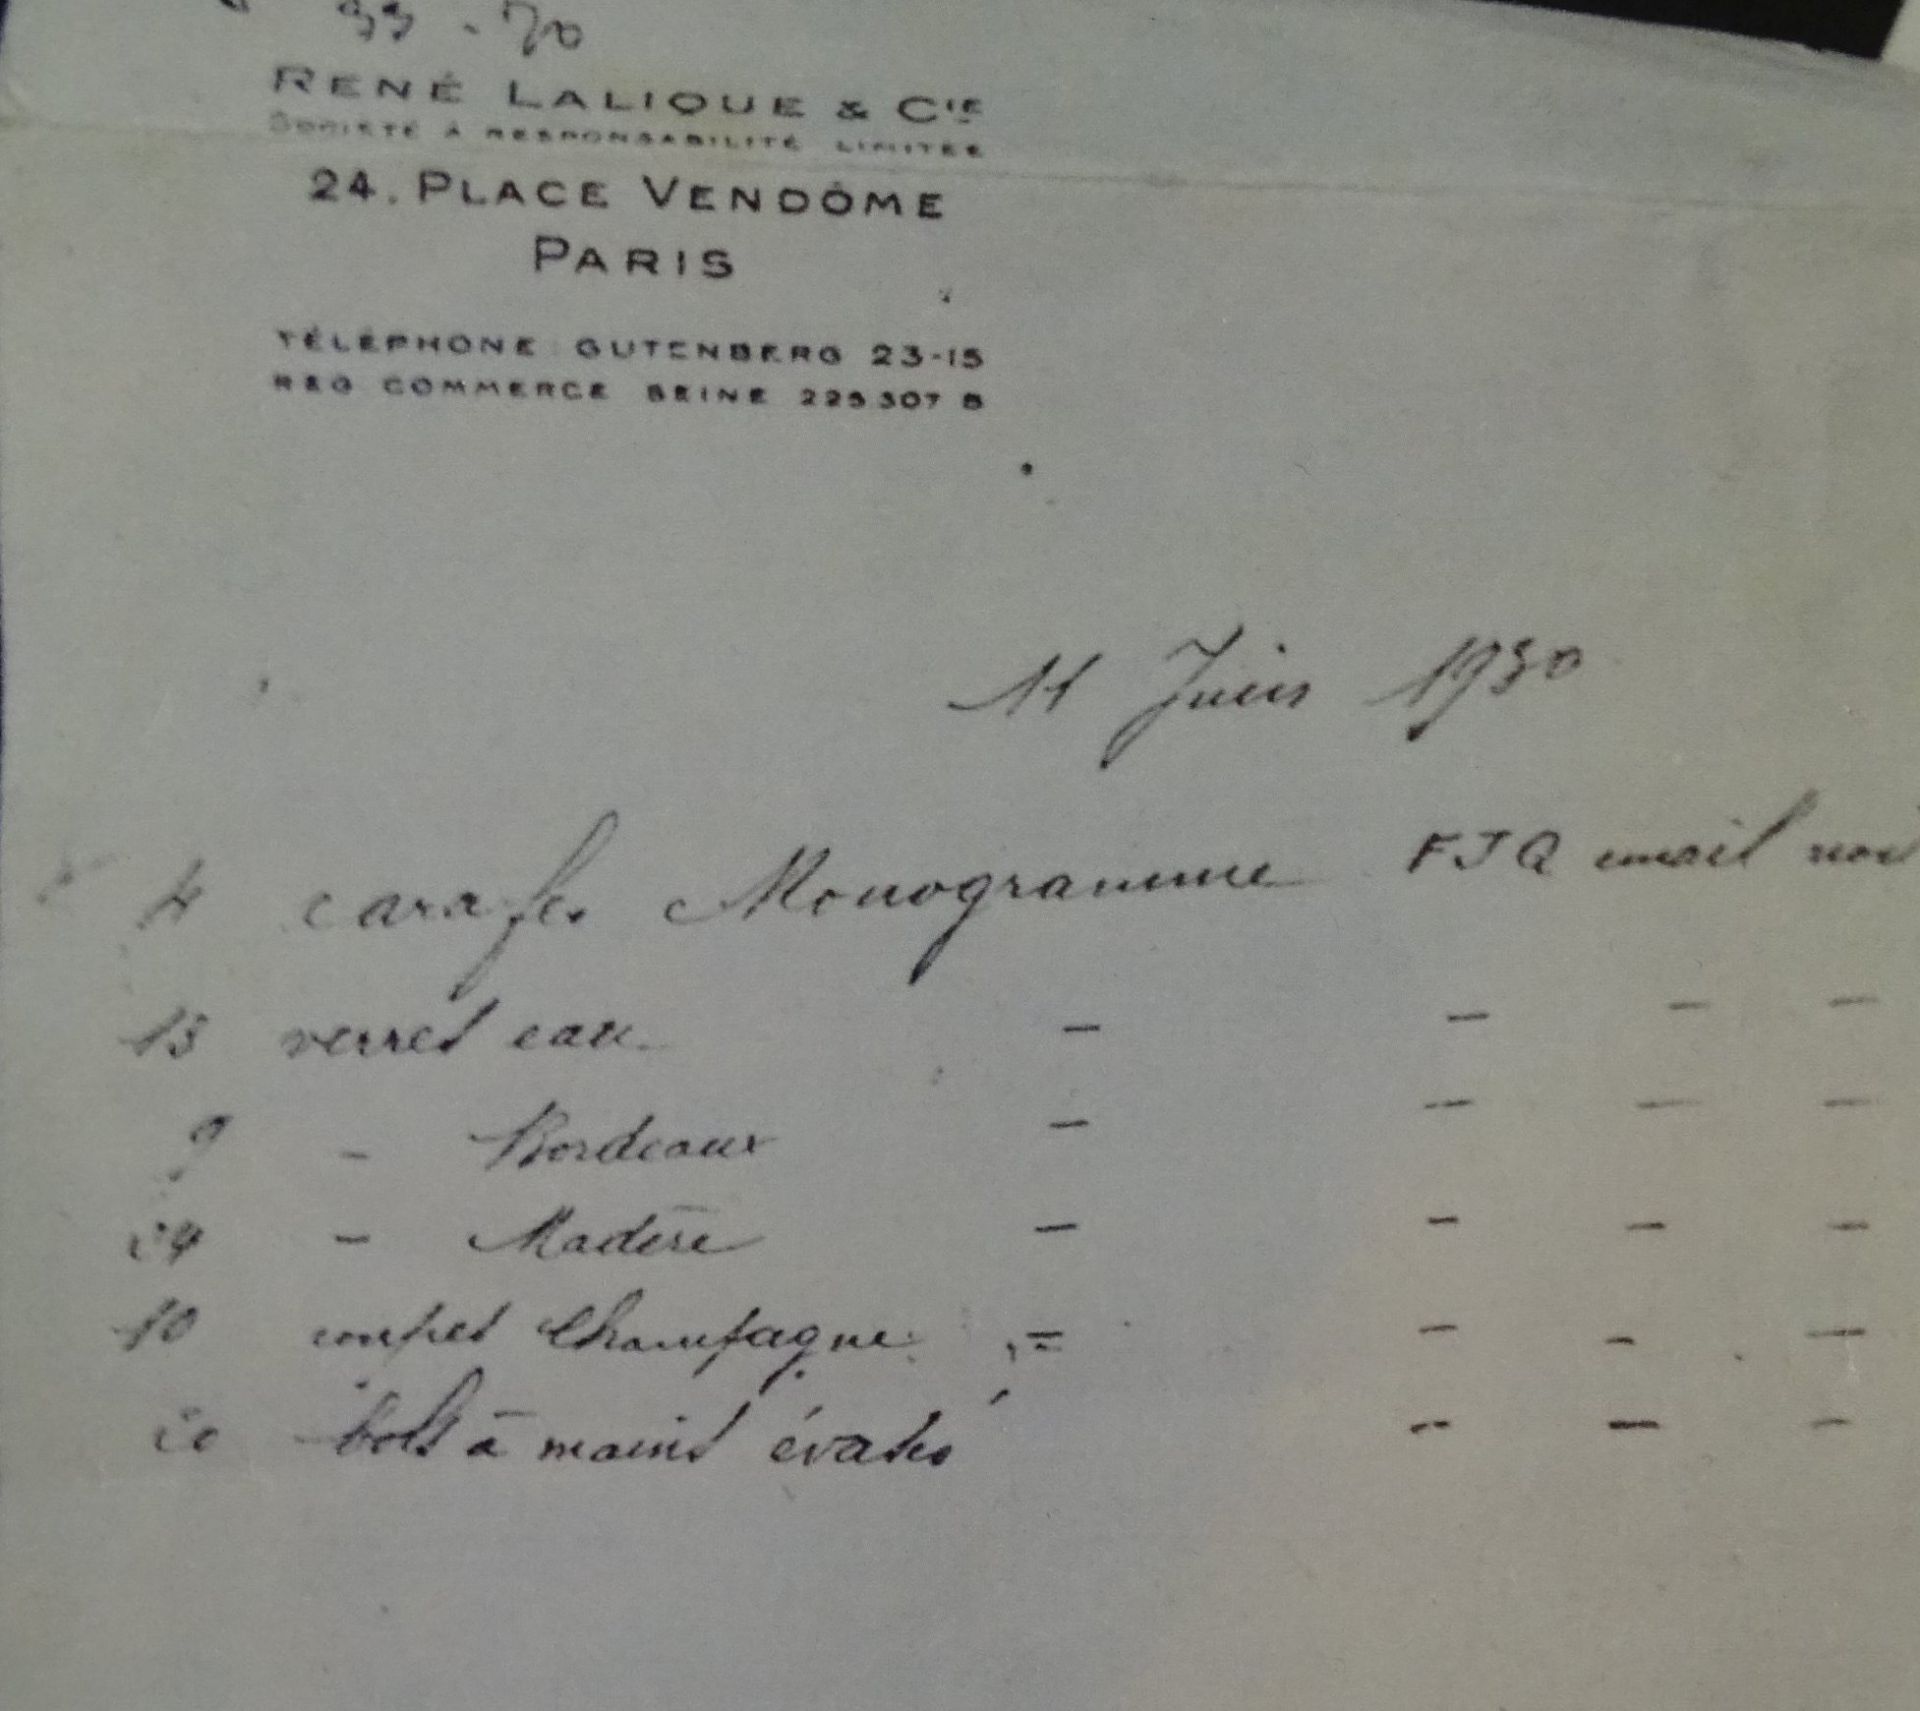 33 . 70
RENÉ LALIQUE & CIE
SOCIÉTÉ À RESPONSABILITÉ LIMITÉE
24, PLACE VENDÔME
PARIS
TÉLÉPHONE GUTENBERG 23-15
REG COMMERCE SEINE 225307 B
11 Juin 1930
4 carafes Monogramme FJQ email noir
13 verres eau - - - -
9 - Bordeaux - - - -
24 - Madère - - - -
10 coupes Champagne = - - -
20 bols à mains évasés - - -